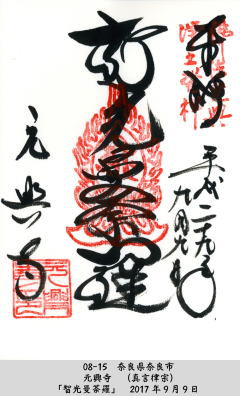 奉拝
平成二十九年
九月九日
智光曼荼羅
元興寺
08-15　奈良県奈良市
元興寺　（真言律宗）
「智光曼荼羅」　2017年9月9日